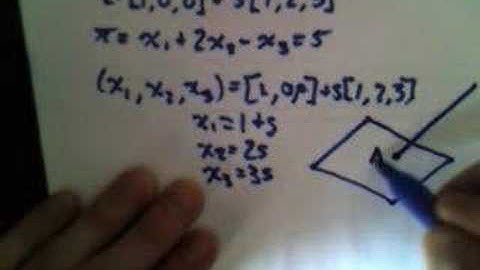 [1,0,0] + s[1,2,3]
π = x₁ + 2x₂ - x₃ = 5
(x₁, x₂, x₃) = [1,0,0] + s[1,2,3]
x₁ = 1 + s
x₂ = 2s
x₃ = 3s
A